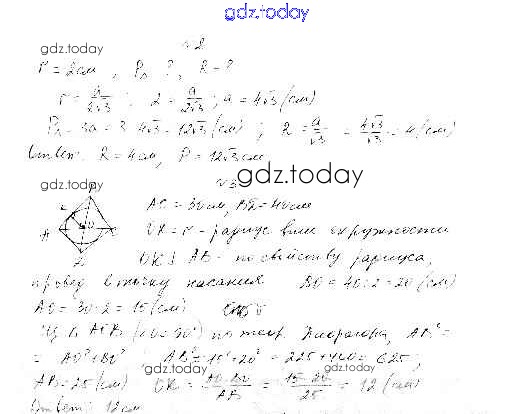 gdz.today
№2
gdz.today
r = 2см, P₃ - ?, R - ?
r = a/2√3; 2 = a/2√3; a = 4√3 (см)
P₃ = 3a = 3·4√3 = 12√3 (см); R = a/√3 = 4√3/√3 = 4 (см)
Ответ: R = 4см, P = 12√3 см
gdz.today
№3
gdz.today
AC = 30 см, BD = 40 см
OK = r - радиус впис. окружности
OK ⊥ AB - по свойству радиуса,
провед. в точку касания BO = 40:2 = 20 (см)
AO = 30:2 = 15 (см)
Из △ AOB (∠O = 90°) по теор. Пифагора, AB² =
= AO² + BO² AB² = 15² + 20² = 225 + 400 = 625
AB = 25 (см) OK = AO·BO/AB = 15·20/25 = 12 (см)
gdz.today
gdz.today
Ответ: 12 см